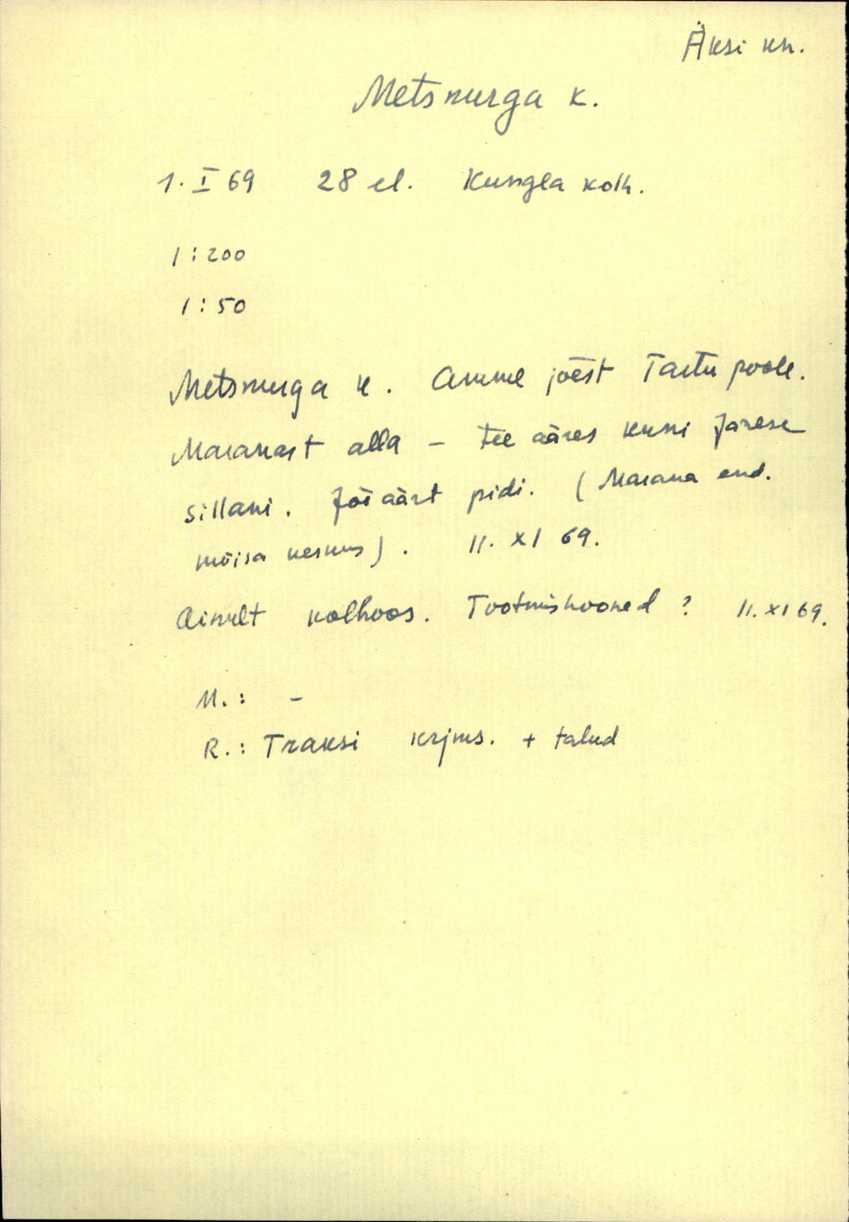 Äksi kn.
Metsnurga k.
1. I 69 28 el. Kungla kolh.
1:200
1:50
Metsnurga k. Amme jõest Tartu poole.
Maranast alla – tee ääres kuni Järese
sillani. Jõe äärt pidi. (Marana end.
mõisa keskus). 11. XI 69.
Ainult kolhoos. Tootmishooned? 11. XI 69.
M.: –
R.: Traksi krjms. + talud